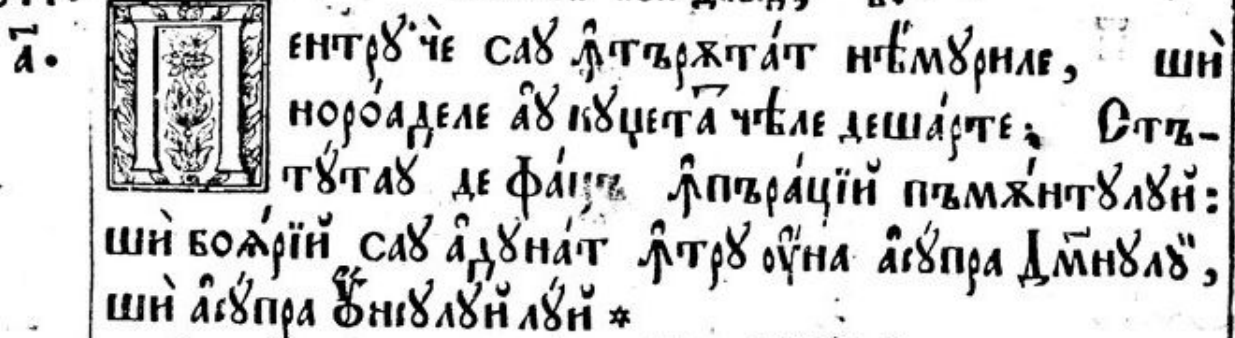 а҃.
Пентрꙋ че саꙋ ꙟтърѫтат нѣмꙋриле, ши
нороаделе аꙋ кꙋџета҃ чѣле дешарте; Стъ-
тꙋтаꙋ де фацъ ꙟпърацїй пъмѫнтꙋлꙋй:
ши боѧрїй саꙋ адꙋнат ꙟтрꙋ оуна асꙋпра Дм҃нꙋлꙋ,
ши асꙋпра Ꙋнсꙋлꙋй лꙋй *